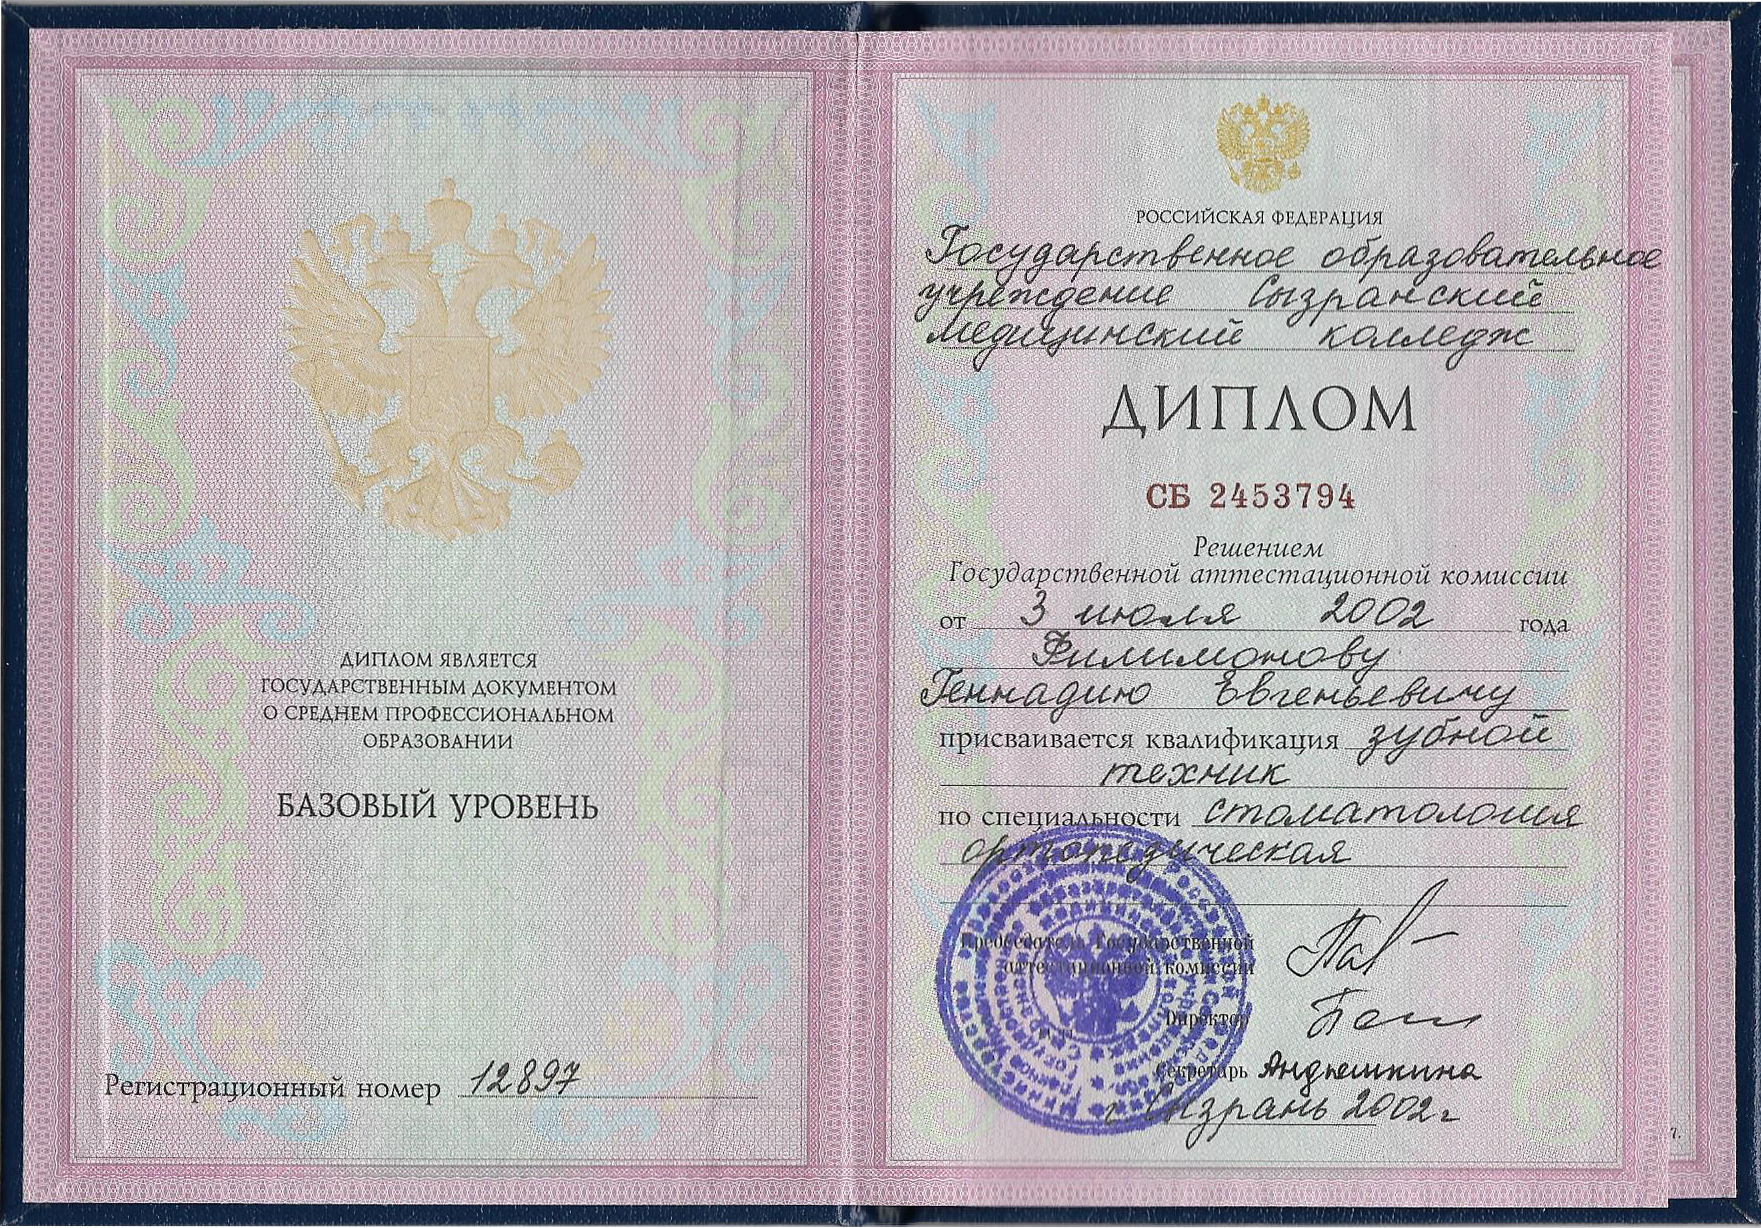 ДИПЛОМ ЯВЛЯЕТСЯ
ГОСУДАРСТВЕННЫМ ДОКУМЕНТОМ
О СРЕДНЕМ ПРОФЕССИОНАЛЬНОМ
ОБРАЗОВАНИИ
БАЗОВЫЙ УРОВЕНЬ
Регистрационный номер 12897
РОССИЙСКАЯ ФЕДЕРАЦИЯ
Государственное образовательное
учреждение Сызранский
медицинский колледж
ДИПЛОМ
СБ 2453794
Решением
Государственной аттестационной комиссии
от 3 июля 2002 года
Филимонову
Геннадию Евгеньевичу
присваивается квалификация зубной
техник
по специальности стоматология
ортопедическая
Председатель Государственной
аттестационной комиссии
Директор
Секретарь Андрюшкина
г Сызрань 2002г